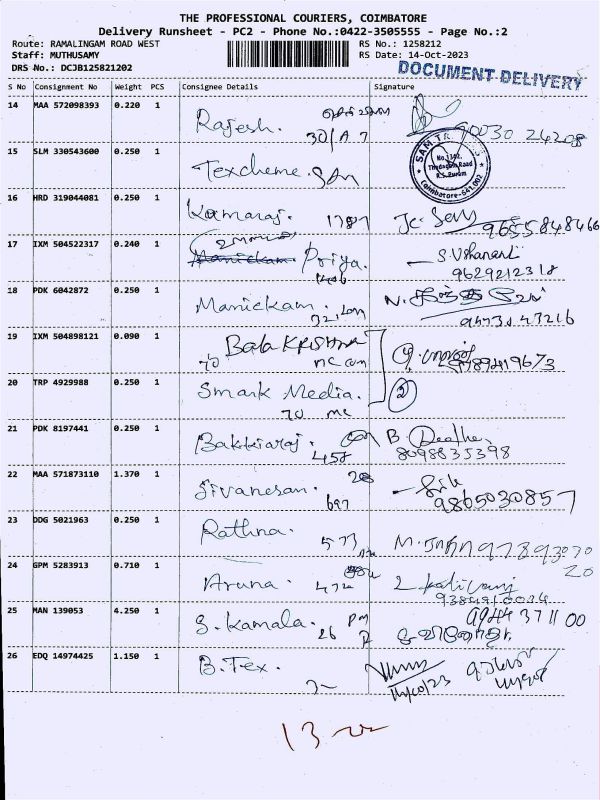 THE PROFESSIONAL COURIERS, COIMBATORE
Delivery Runsheet - PC2 - Phone No.:0422-3505555 - Page No.:2
Route: RAMALINGAM ROAD WEST RS No.: 1258212
Staff: MUTHUSAMY RS Date: 14-Oct-2023
DRS No.: DCJB125821202
DOCUMENT DELIVERY
S No Consignment No Weight PCS Consignee Details Signature
14 MAA 572098393 0.220 1 Rajesh.
30/A 7 90030 24208
15 SLM 330543600 0.250 1 Texcheme.
SAM TRA
No.1142,
Thadagam Road
R.S. Puram
Coimbatore-641 002
16 HRD 319044081 0.250 1 Kamaraj. 9655848466
17 IXM 504522317 0.240 1 Manickam Priya. S. Ushanandi
1406 9629212318
18 PDK 6042872 0.250 1 Manickam.
19 IXM 504898121 0.090 1 Bala KRISHNA
70 9789419673
20 TRP 4929988 0.250 1 Smark Media. 2
70 mc
21 PDK 8197441 0.250 1 Bakkiaraj. B.
458 8098835398
22 MAA 571873110 1.370 1 Sivanesan. 28
697 9865030857
23 DDG 5021963 0.250 1 Rathna.
573 97893070
20
24 GPM 5283913 0.710 1 Aruna. 472
9384910034
25 MAN 139053 4.250 1 S. Kamala. 9944 371100
26
26 EDQ 14974425 1.150 1 B.Tex.
13